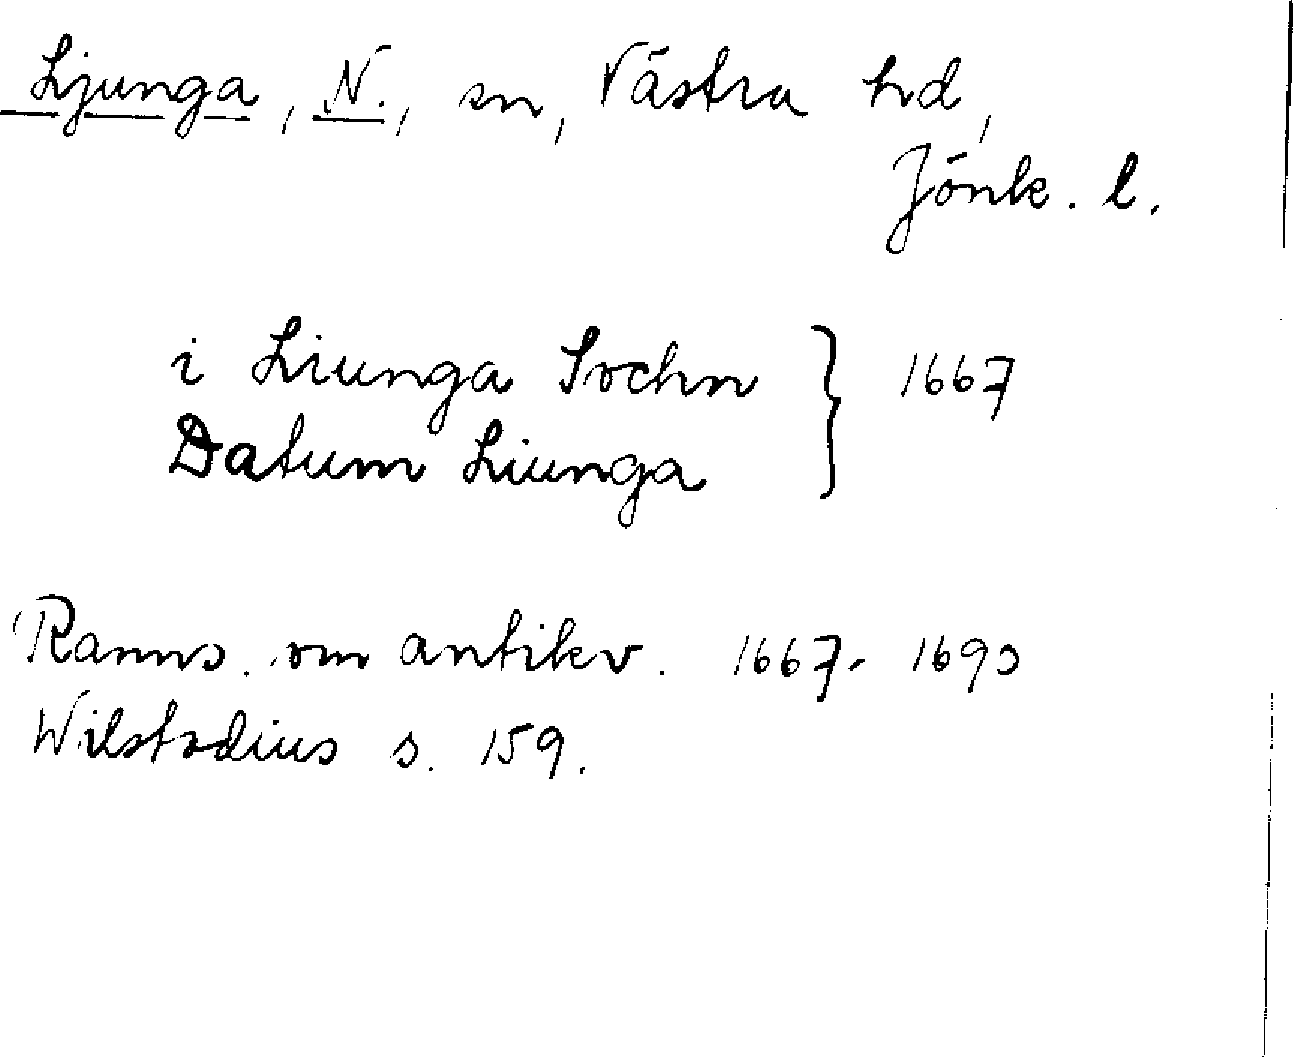 Ljunga, N., sn, Västra hd,
Jönk. l.
i Liunga Sochn } 1667
Datum Liunga
Ranns. om antikv. 1667-1690
Wilstadius s. 159.